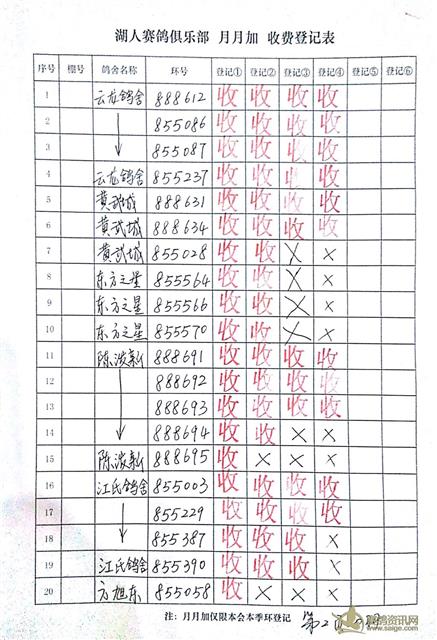 湖人赛鸽俱乐部 月月加 收费登记表
序号 棚号 鸽舍名称 环号 登记① 登记② 登记③ 登记④ 登记⑤ 登记⑥
1 云龙鸽舍 888612 收 收 收 收
2 855086 收 收 收 收
3 ↓ 855087 收 收 收 收
4 云龙鸽舍 855237 收 收 收 收
5 黄武城 888631 收 收 收 收
6 黄武城 888634 收 收 收 收
7 黄武城 855028 收 收 × ×
8 东方之星 855564 收 收 × ×
9 东方之星 855566 收 收 × ×
10 东方之星 855570 收 收 × ×
11 陈波新 888691 收 收 收 收
12 888692 收 收 收 收
13 888693 收 收 收 收
14 ↓ 888694 收 收 × ×
15 陈波新 888695 收 × × ×
16 江氏鸽舍 855003 收 收 收 收
17 855229 收 收 收 收
18 ↓ 855387 收 收 收 ×
19 江氏鸽舍 855390 收 收 收 ×
20 方旭东 855058 收 × × ×
注：月月加仅限本会本季环登记 第2页
赛鸽资讯网
www.saige.com